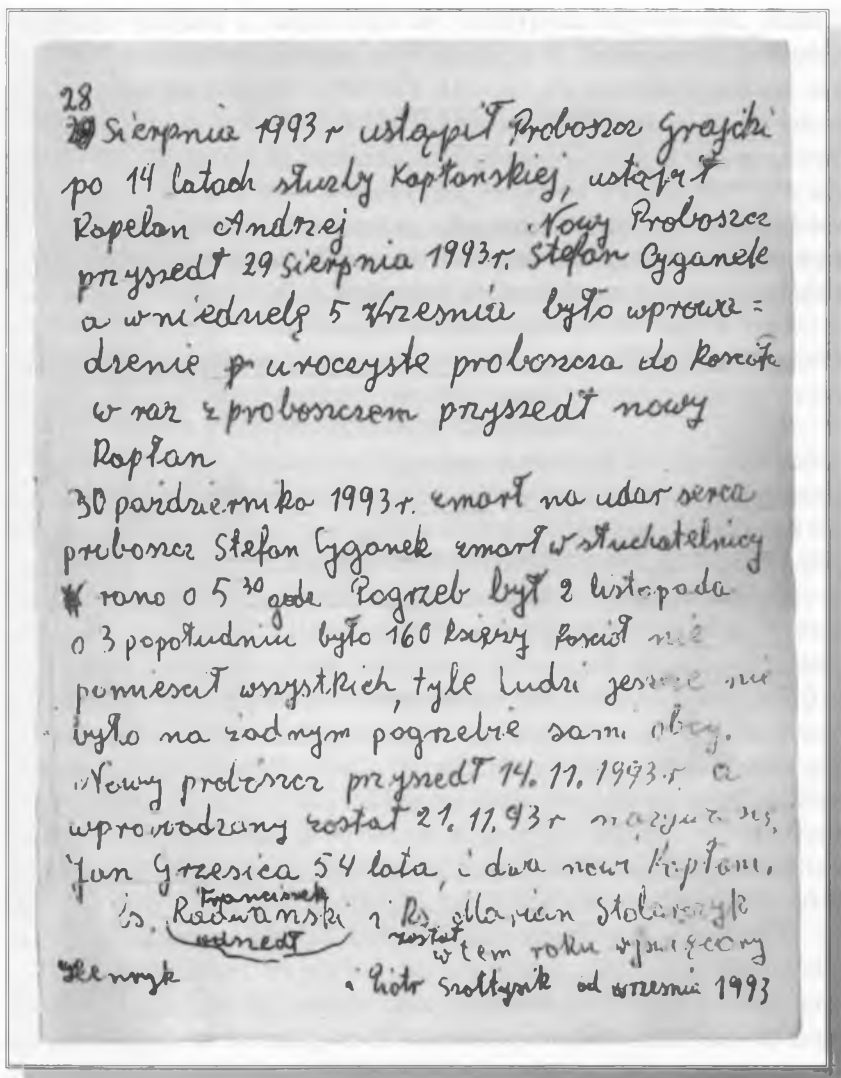 28
Sierpnia 1993 r ustąpił Proboszcz Grajcki
po 14 latach służby Kapłańskiej, ustąpił
Kapelan Andrzej Nowy Proboszcz
przyszedł 29 Sierpnia 1993r. Stefan Cyganek
a w niedzielę 5 Wrzesnia było wprowa=
dzenie uroczyste proboszcza do Kościoła
w raz z proboszczem przyszedł nowy
Kapłan
30 pażdziernika 1993 r. zmarł na udar serca
proboszcz Stefan Cyganek zmarł w słuchatelnicy
rano o 5 30 godz Pogrzeb był 2 listopada
o 3 popołudniu było 160 księzy Kosciół nie
pomiescił wszystkich, tyle ludzi jeszcze nie
było na żadnym pogrzebie sami obcy.
Nowy proboszcz przyszedł 14. 11. 1993 r. a
wprowodzany został 21. 11. 93 r nazywa się,
Jan Grzesica 54 lata, i dwa nowi Kapłani.
Franciszek
ks. Radwański i Ks Marian Stolarczyk
odszedł został w tem roku wyswięcony
Henryk i Piotr Szołtysik od wrzesnia 1993